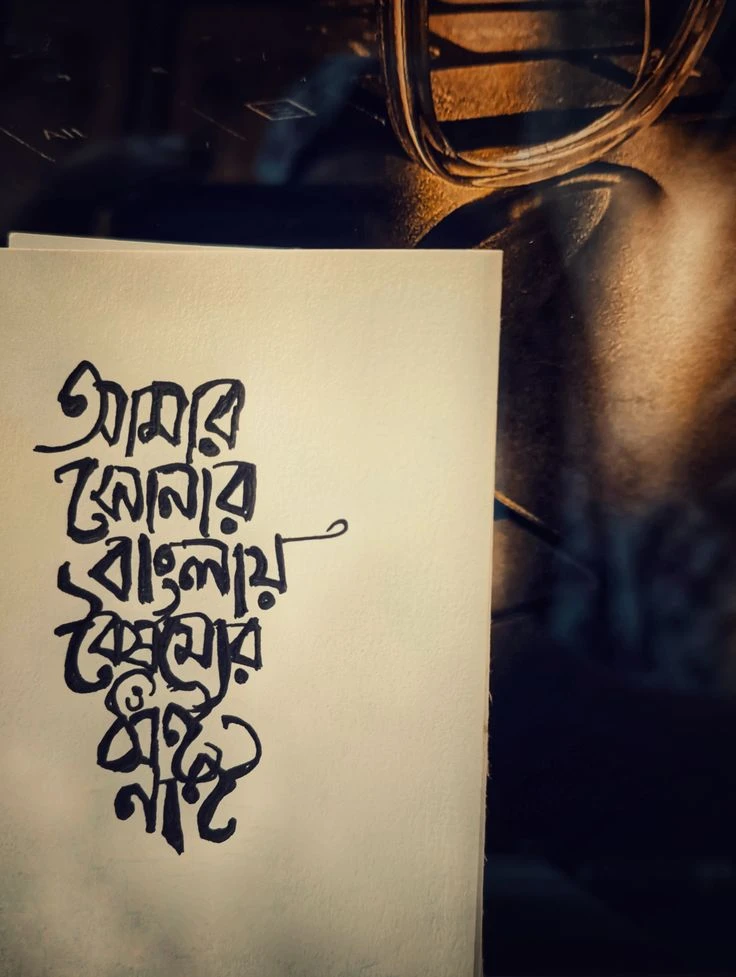 আমার
সোনার
বাংলায়
বৈষম্যের
ঠাঁই
নাই